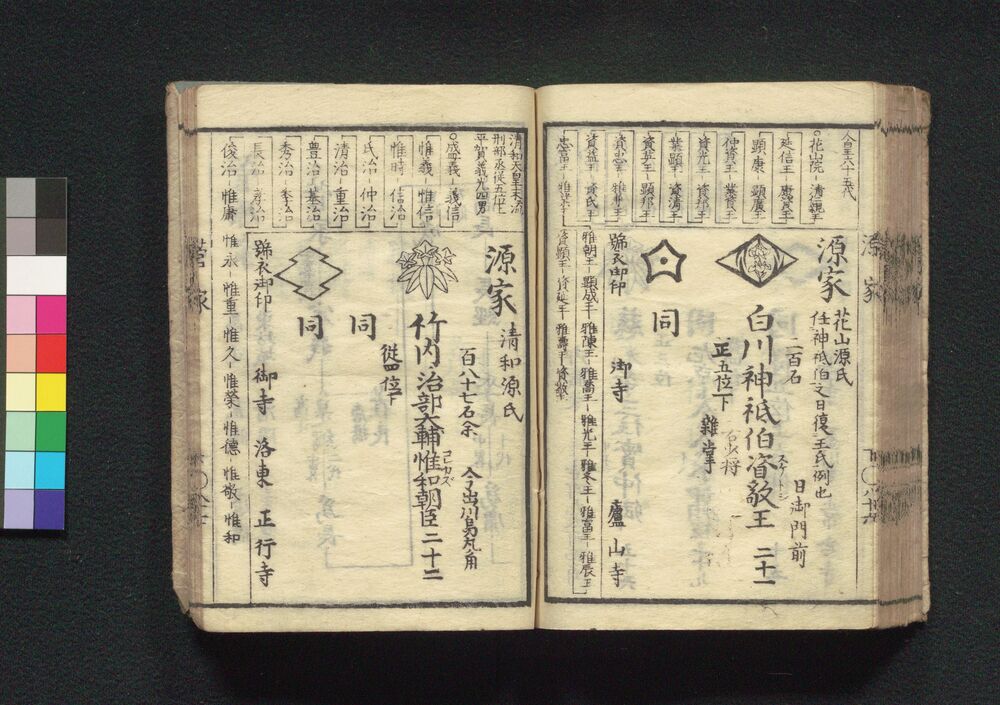 人皇六十五代
花山院－清仁親王
延信王－康資王
顕康－顕廣王
仲資王－業資王
資光王－資邦王
業顕王－資清王
資英王－顕邦王
資忠王－雅兼王
資益王－資氏王
忠富王－雅業王
源家
花山源氏
任神祇伯之日復王氏例也
二百石
日御門前
白川神祇伯資敬王 二十一
正五位下
雜掌
同
號衣御印
御寺
廬山寺
雅朝王－顕成王－雅陳王－雅喬王－雅光王－雅冬王－雅富王－雅辰王
資顕王－資延王－雅壽王－資敬
源家
八十六
清和天皇末流
刑部丞従五位上
平賀義光四男
盛義 義信
惟義 惟信
惟時－信治
氏治－仲治
清治－重治
豊治－基治
秀治－季治
長治－孝治
俊治 惟庸 惟永－惟重－惟久－惟榮－惟德－惟敬－惟和
源家
清和源氏
百八十七石余
今出川烏丸角
竹内治部大輔惟和朝臣 二十二
コレカズ
從四位下
同
同
號衣御印
御寺
洛東
正行寺
家